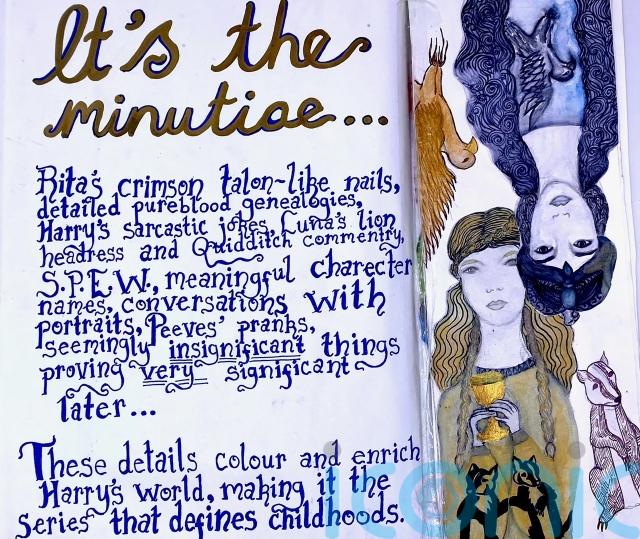 It's the
minutiae...
Rita's crimson talon-like nails,
detailed pureblood genealogies,
Harry's sarcastic jokes, Luna's lion
headress and Quidditch commentry,
S.P.E.W., meaningful charecter
names, conversations with
portraits, Peeves' pranks,
seemingly insignificant things
proving very significant
later...
These details colour and enrich
Harry's world, making it the
series that defines childhoods.
iconic